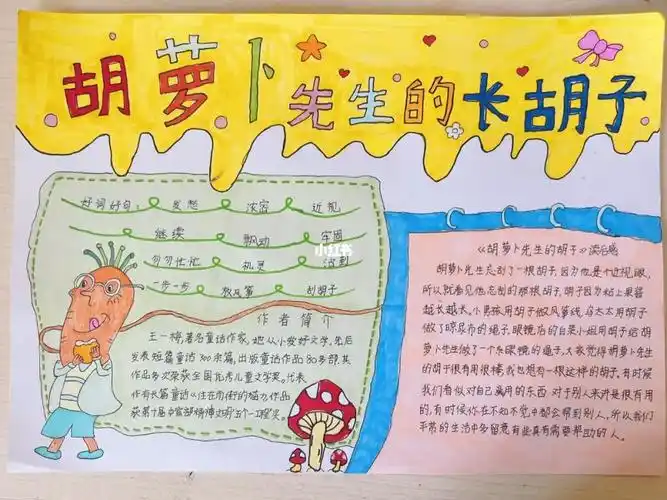 胡萝卜先生的长胡子
好词好句 发愁 浓密 近视
继续 飘动 牢固
匆匆忙忙 机灵
一步一步 放风筝 刮胡子
小红书
作者简介
王一梅,著名童话作家,她从小爱好文学,先后
发表短篇童话300余篇,出版童话作品80多部,其
作品多次荣获全国优秀儿童文学奖。代表
作有长篇童话《住在雨街的猫》作品
获第十届中宣部精神文明五个一工程奖。
《胡萝卜先生的胡子》读后感
胡萝卜先生忘刮了一根胡子,因为他是个近视眼,
所以就看见他忘刮的那根胡子,胡子因为粘上果酱
越长越长。小男孩用胡子做风筝线,鸟太太用胡子
做了晾尿布的绳子,眼镜店的白菜小姐用胡子给胡
萝卜先生做了一个系眼镜的绳子,大家觉得胡萝卜先生
的胡子很有用很棒,我也想有一根这样的胡子。有时候
我们看似对自己无用的东西,对于别人来讲是很有用
的,有时候你在不知不觉中都会帮到别人,所以我们
平常的生活中多留意有些真有需要帮助的人。